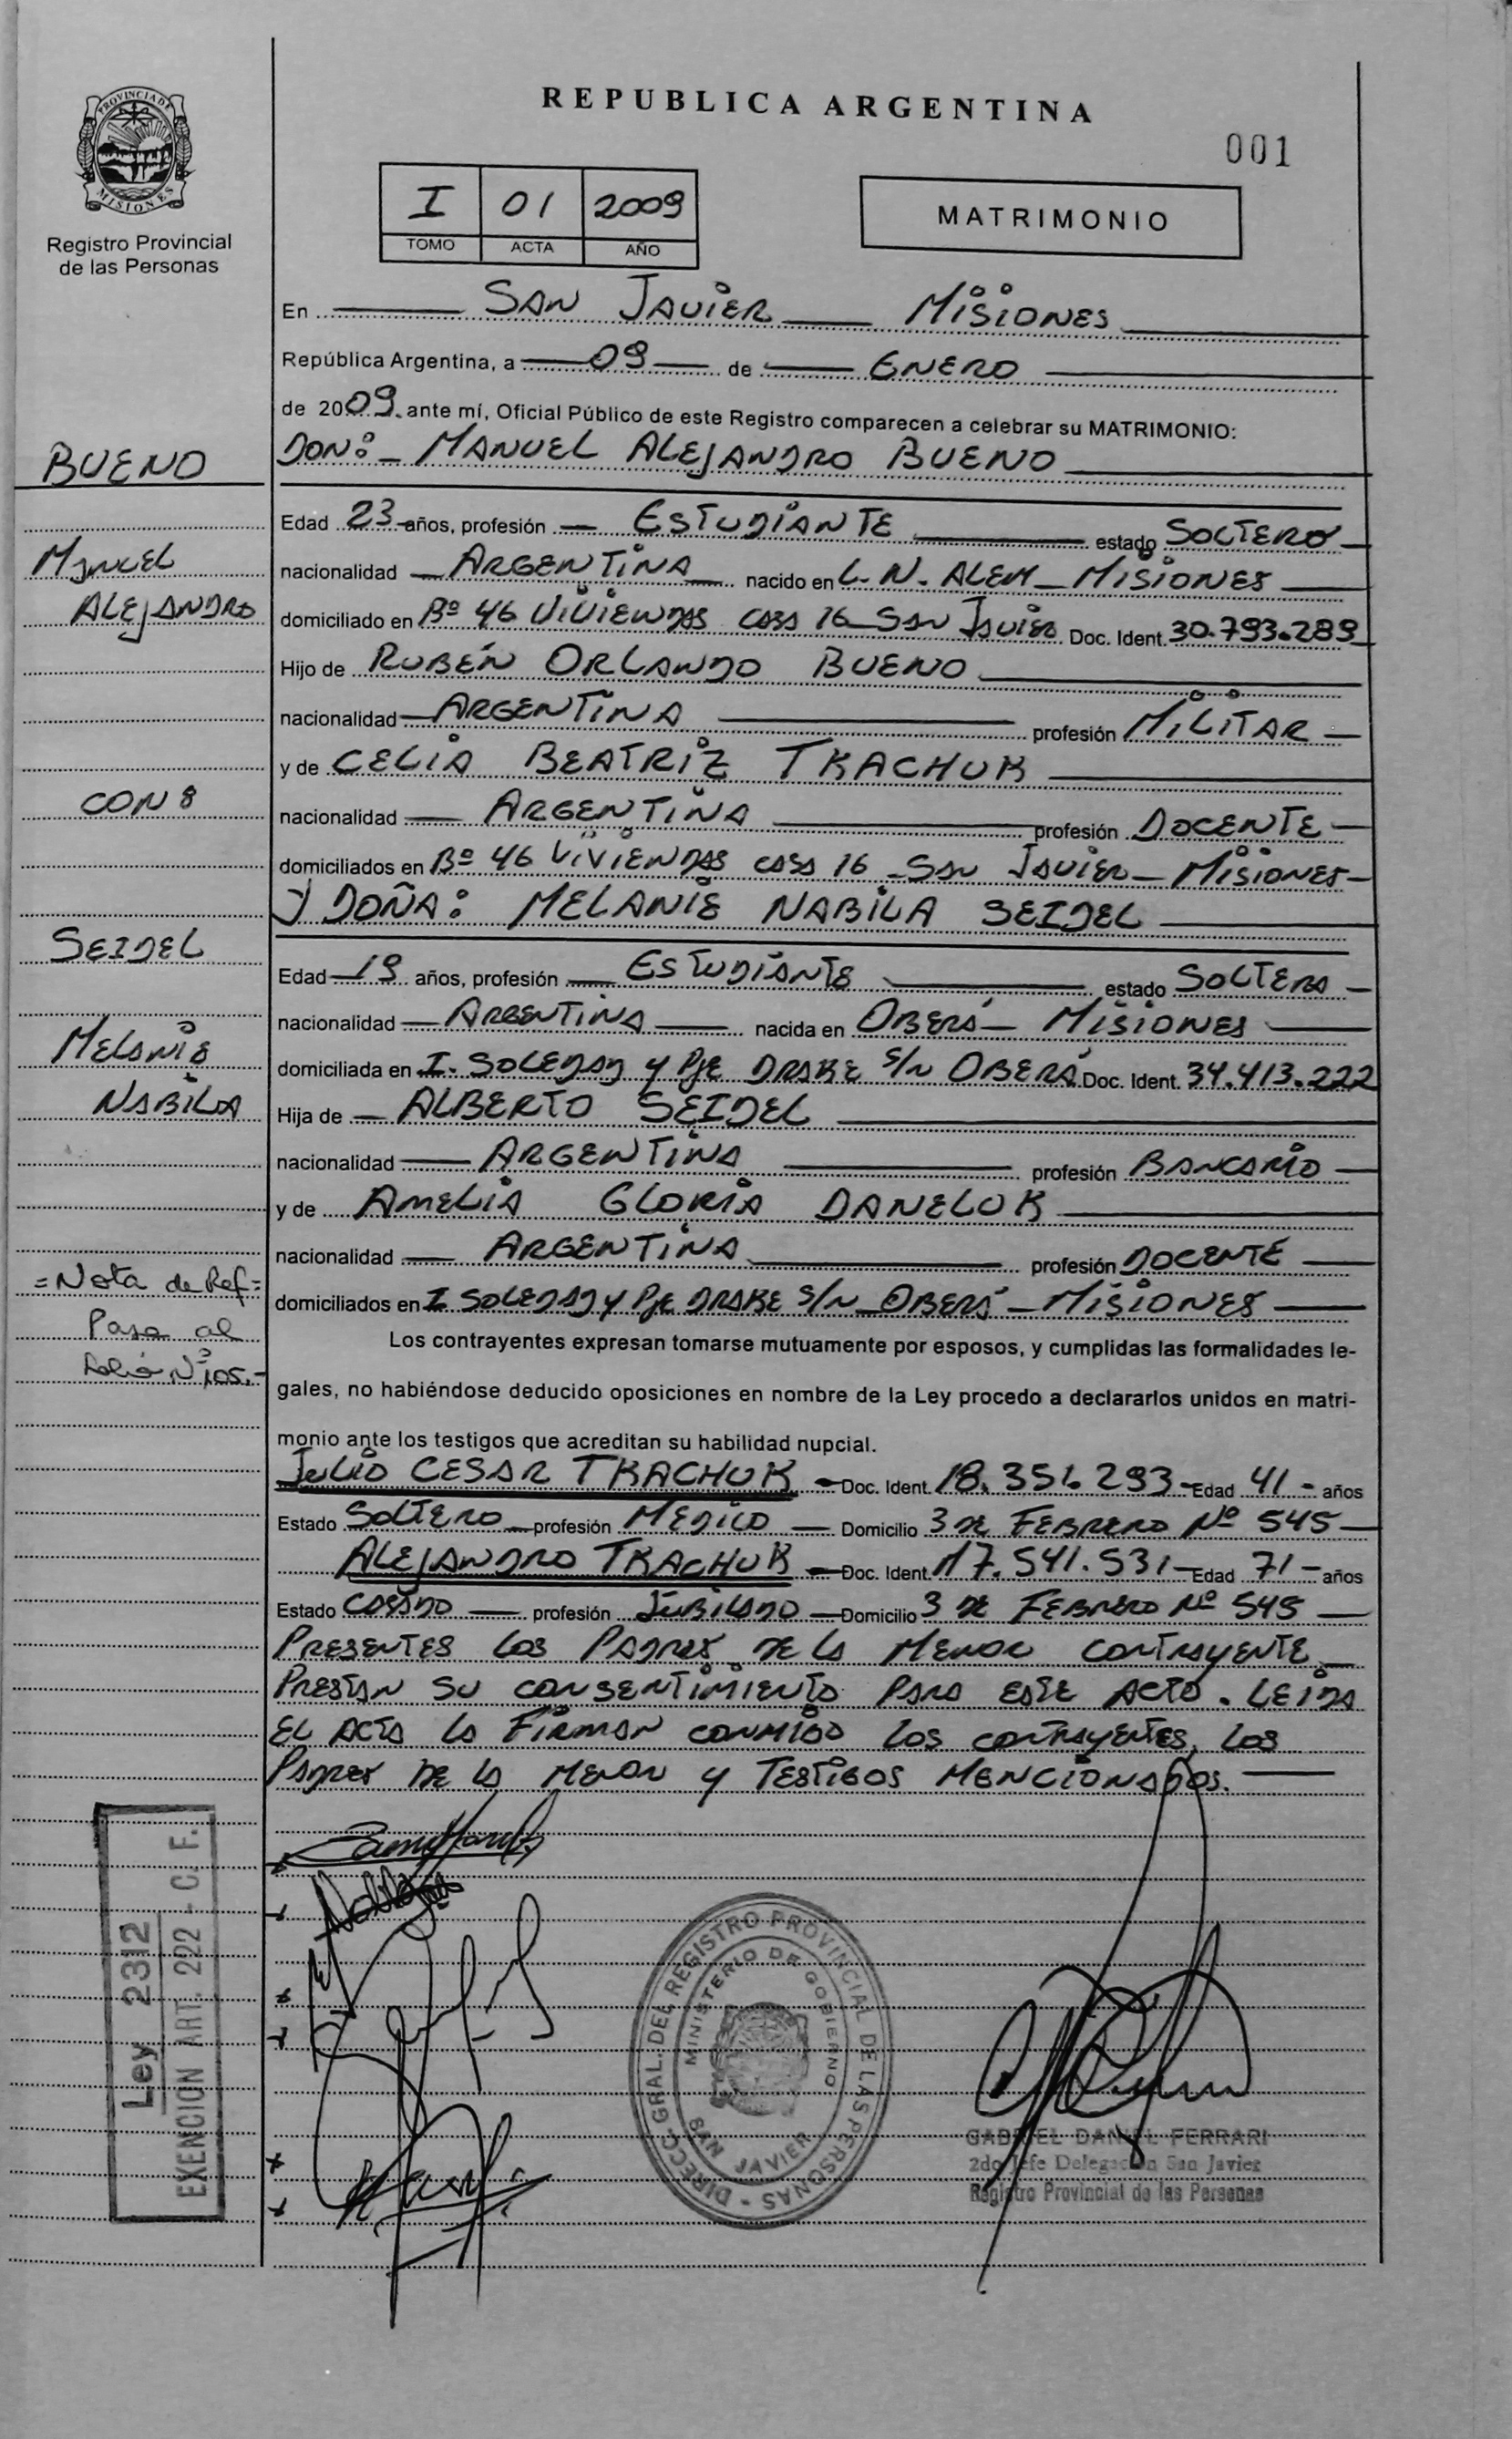 REPUBLICA ARGENTINA
001
PROVINCIA DE
MISIONES
Registro Provincial
de las Personas
I 01 2009
TOMO ACTA AÑO
MATRIMONIO
En SAN JAVIER MISIONES
República Argentina, a 09 de ENERO
de 2009 ante mí, Oficial Público de este Registro comparecen a celebrar su MATRIMONIO:
BUENO
DON: MANUEL ALEJANDRO BUENO
Edad 23 años, profesión ESTUDIANTE estado SOLTERO
MANUEL
nacionalidad ARGENTINA nacido en L. N. ALEM MISIONES
ALEJANDRO
domiciliado en Bº 46 VIVIENDAS CASA 16 SAN JAVIER Doc. Ident. 30.793.289
Hijo de RUBÉN ORLANDO BUENO
nacionalidad ARGENTINA profesión MILITAR
y de CELIA BEATRIZ TKACHUK
CON:
nacionalidad ARGENTINA profesión DOCENTE
domiciliados en Bº 46 VIVIENDAS CASA 16 SAN JAVIER MISIONES
Y DOÑA: MELANIE NABILA SEIDEL
SEIDEL
Edad 19 años, profesión ESTUDIANTE estado SOLTERA
nacionalidad ARGENTINA nacida en OBERÁ MISIONES
MELANIE
domiciliada en I. SOLEDAD Y PJE DRAKE S/N OBERÁ Doc. Ident. 34.413.222
NABILA
Hija de ALBERTO SEIDEL
nacionalidad ARGENTINA profesión BANCARIO
y de AMELIA GLORIA DANELUK
nacionalidad ARGENTINA profesión DOCENTE
=Nota de Ref=
domiciliados en I SOLEDAD Y PJE DRAKE S/N OBERÁ MISIONES
Pasa al
Folio Nº 105.-
Los contrayentes expresan tomarse mutuamente por esposos, y cumplidas las formalidades le-
gales, no habiéndose deducido oposiciones en nombre de la Ley procedo a declararlos unidos en matri-
monio ante los testigos que acreditan su habilidad nupcial.
JULIO CESAR TKACHUK Doc. Ident. 18.351.293 Edad 41 años
Estado SOLTERO profesión MEDICO Domicilio 3 DE FEBRERO Nº 545
ALEJANDRO TKACHUK Doc. Ident. 17.541.531 Edad 71 años
Estado CASADO profesión JUBILADO Domicilio 3 DE FEBRERO Nº 545
PRESENTES LOS PADRES DE LA MENOR CONTRAYENTE
PRESTAN SU CONSENTIMIENTO PARA ESTE ACTO. LEIDA
EL ACTA LA FIRMAN CONMIGO LOS CONTRAYENTES, LOS
PADRES DE LA MENOR Y TESTIGOS MENCIONADOS.
Ley 2312
EXENCION ART. 222 - C. F.
DIRECC. GRAL. DEL REGISTRO PROVINCIAL DE LAS PERSONAS
MINISTERIO DE GOBIERNO
SAN JAVIER
GABRIEL DANIEL FERRARI
2do Jefe Delegación San Javier
Registro Provincial de las Personas